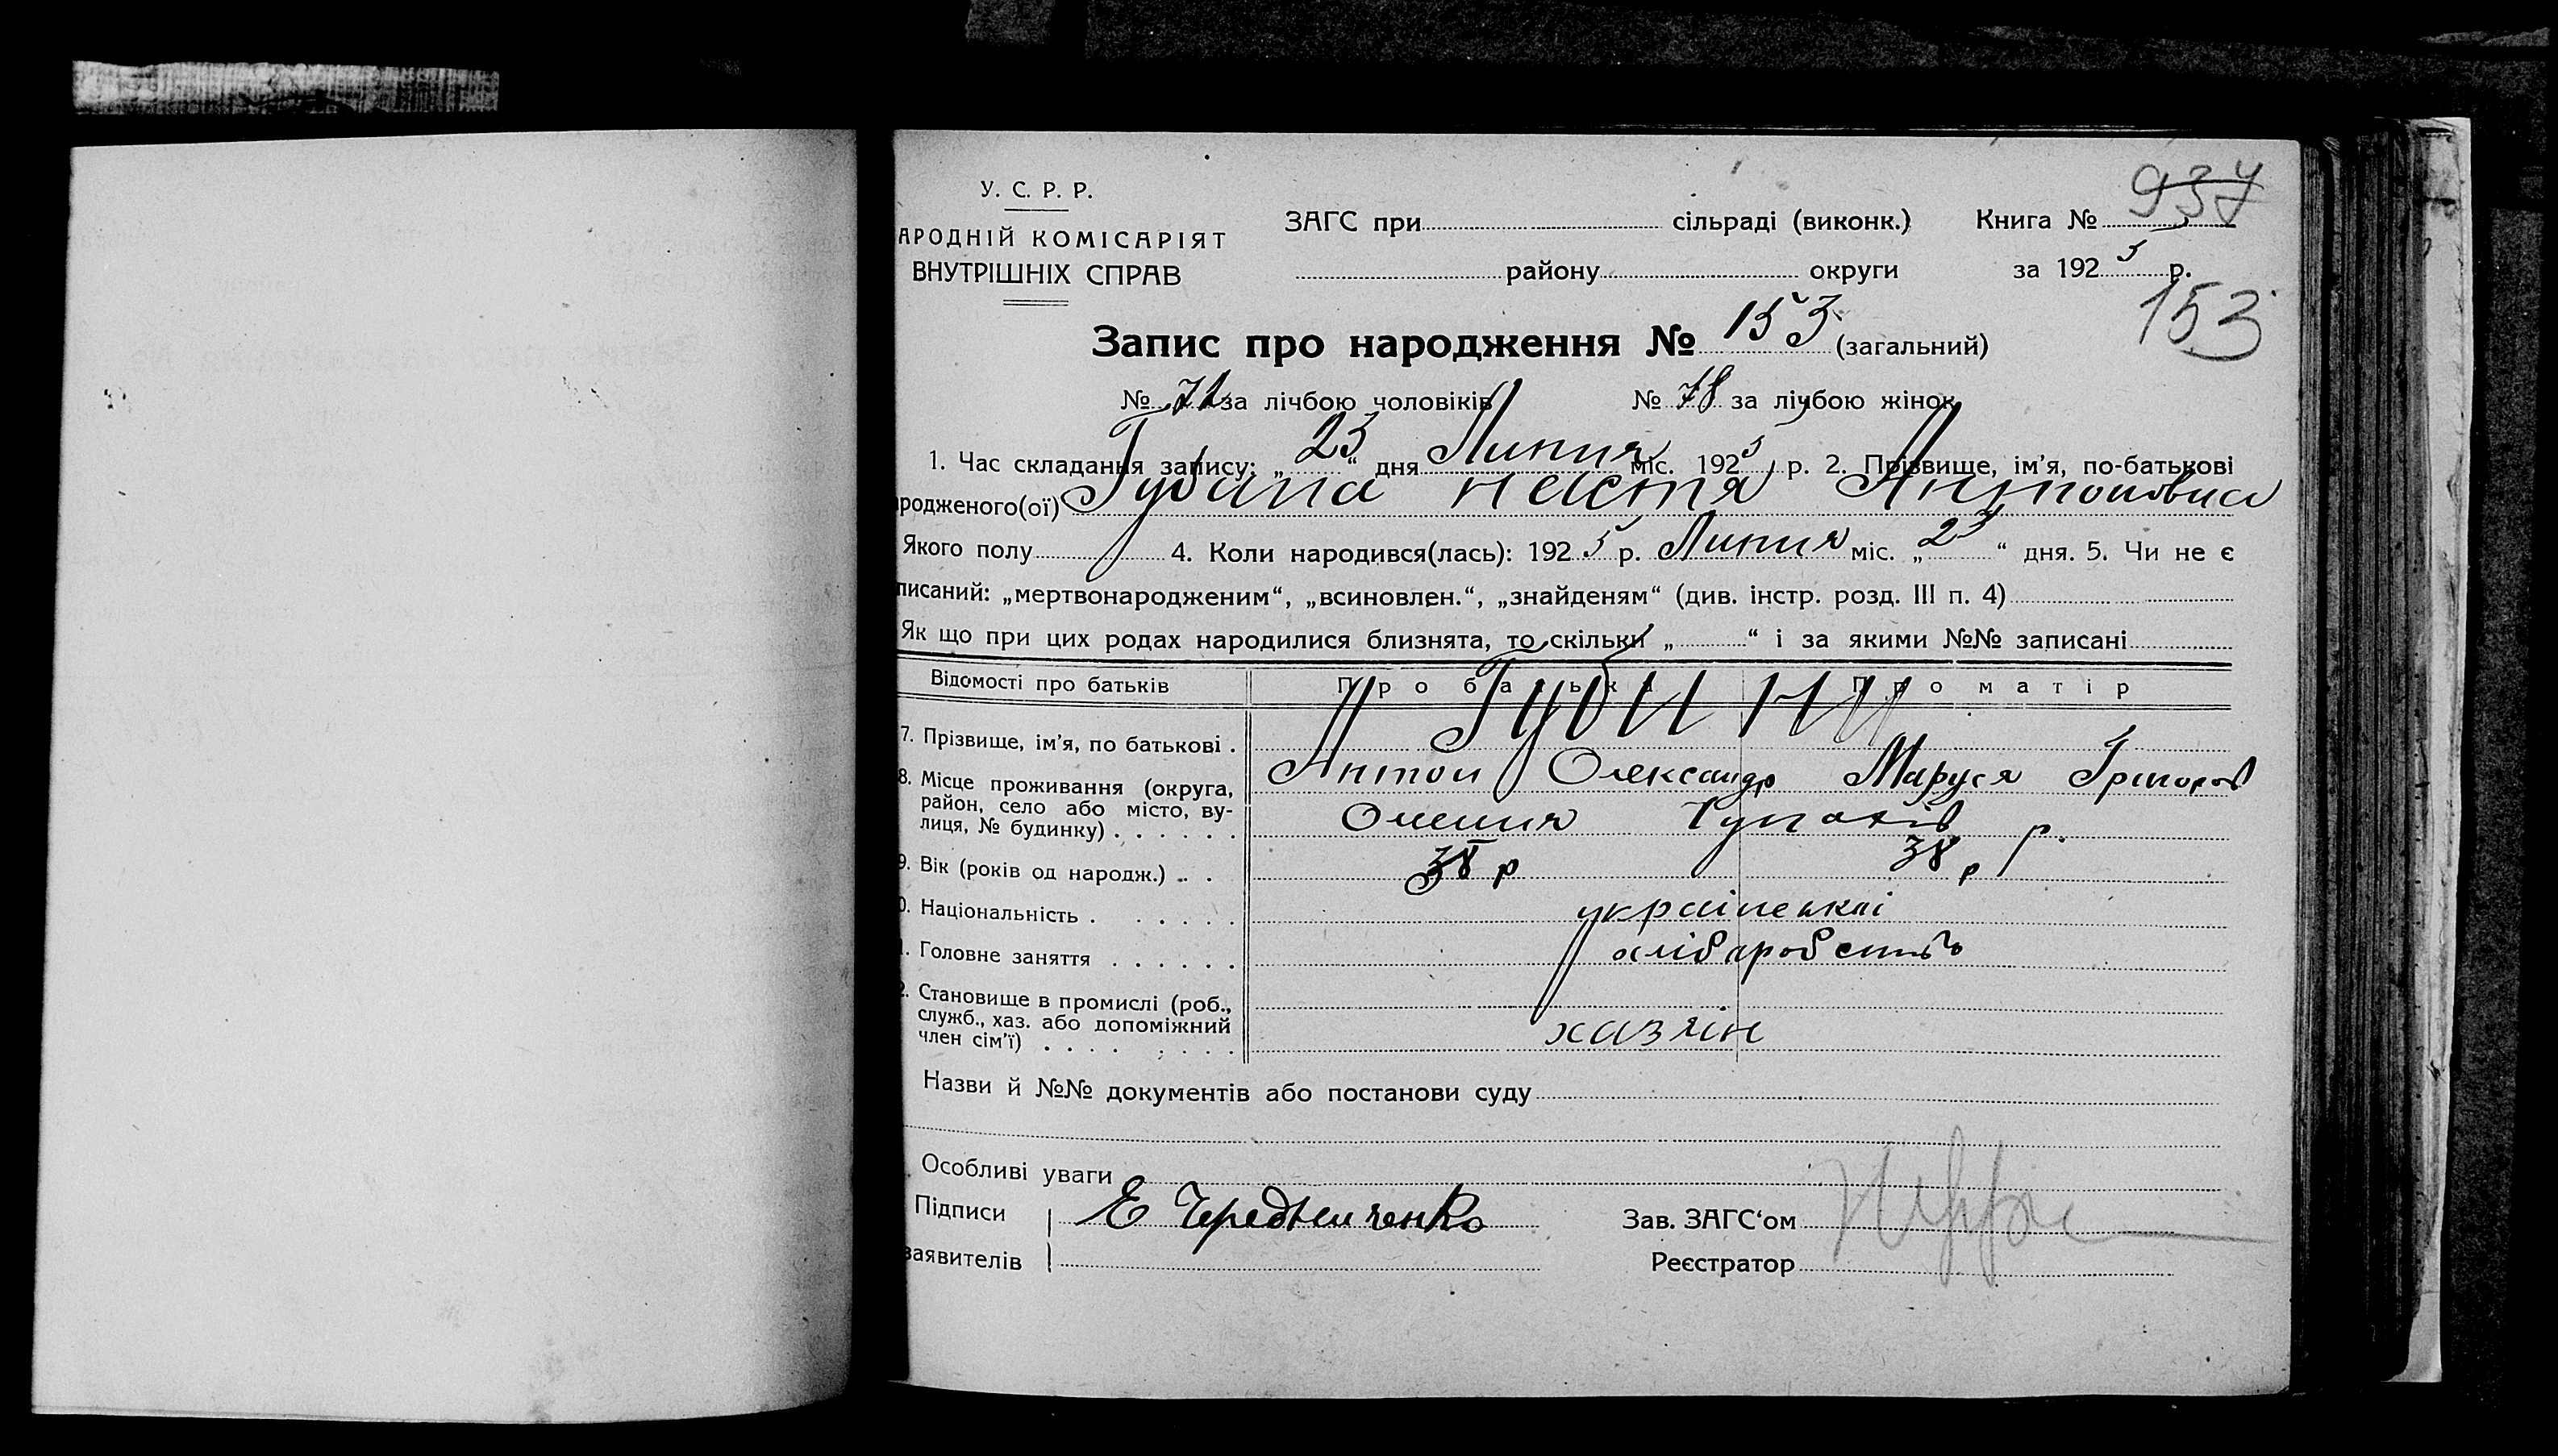 У. С. Р. Р.
АРОДНІЙ КОМІСАРІЯТ
ВНУТРІШНІХ СПРАВ
ЗАГС при сільраді (виконк.)
району округи
Книга № 937
за 1925 р.
153
Запис про народження № 153 (загальний)
№ за лічбою чоловіків № 78 за лічбою жінок
1. Час складання запису: „23“ дня Липня міс. 1925 р. 2. Прізвище, ім'я, по-батькові
родженого(ої) Настя Антоновна
Якого полу 4. Коли народився(лась): 1925 р. Липня міс. „23“ дня. 5. Чи не є
писаний: „мертвонародженим“, „всиновлен.“, „знайденям“ (див. інстр. розд. III п. 4)
Як що при цих родах народилися близнята, то скільки „ “ і за якими №№ записані
Відомості про батьків Про батька Про матір
7. Прізвище, ім'я, по батькові . Губини
Антон Олександр Маруся Григоров
8. Місце проживання (округа,
район, село або місто, ву-
лиця, № будинку) . . . . . . р.
9. Вік (років од народж.) . . . 38 р 38 р
0. Національність . . . . . . українські
1. Головне заняття . . . . . . хлібаробств
2. Становище в промислі (роб.,
служб., хаз. або допоміжний
член сім'ї) . . . . . . . . хазяін
Назви й №№ документів або постанови суду
. Особливі уваги
Підписи Е Чередниченко
заявителів
Зав. ЗАГС'ом
Реєстратор